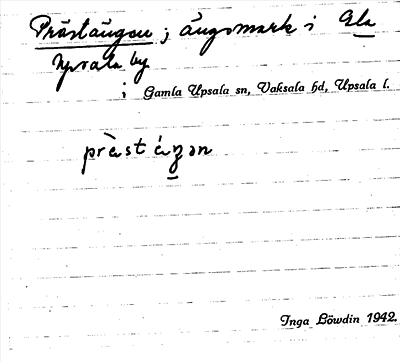 Prästängen ; ängsmark i Gla
Upsala by
i Gamla Upsala sn, Vaksala hd, Upsala l.
prὲstὲŋən
Inga Löwdin 1942.